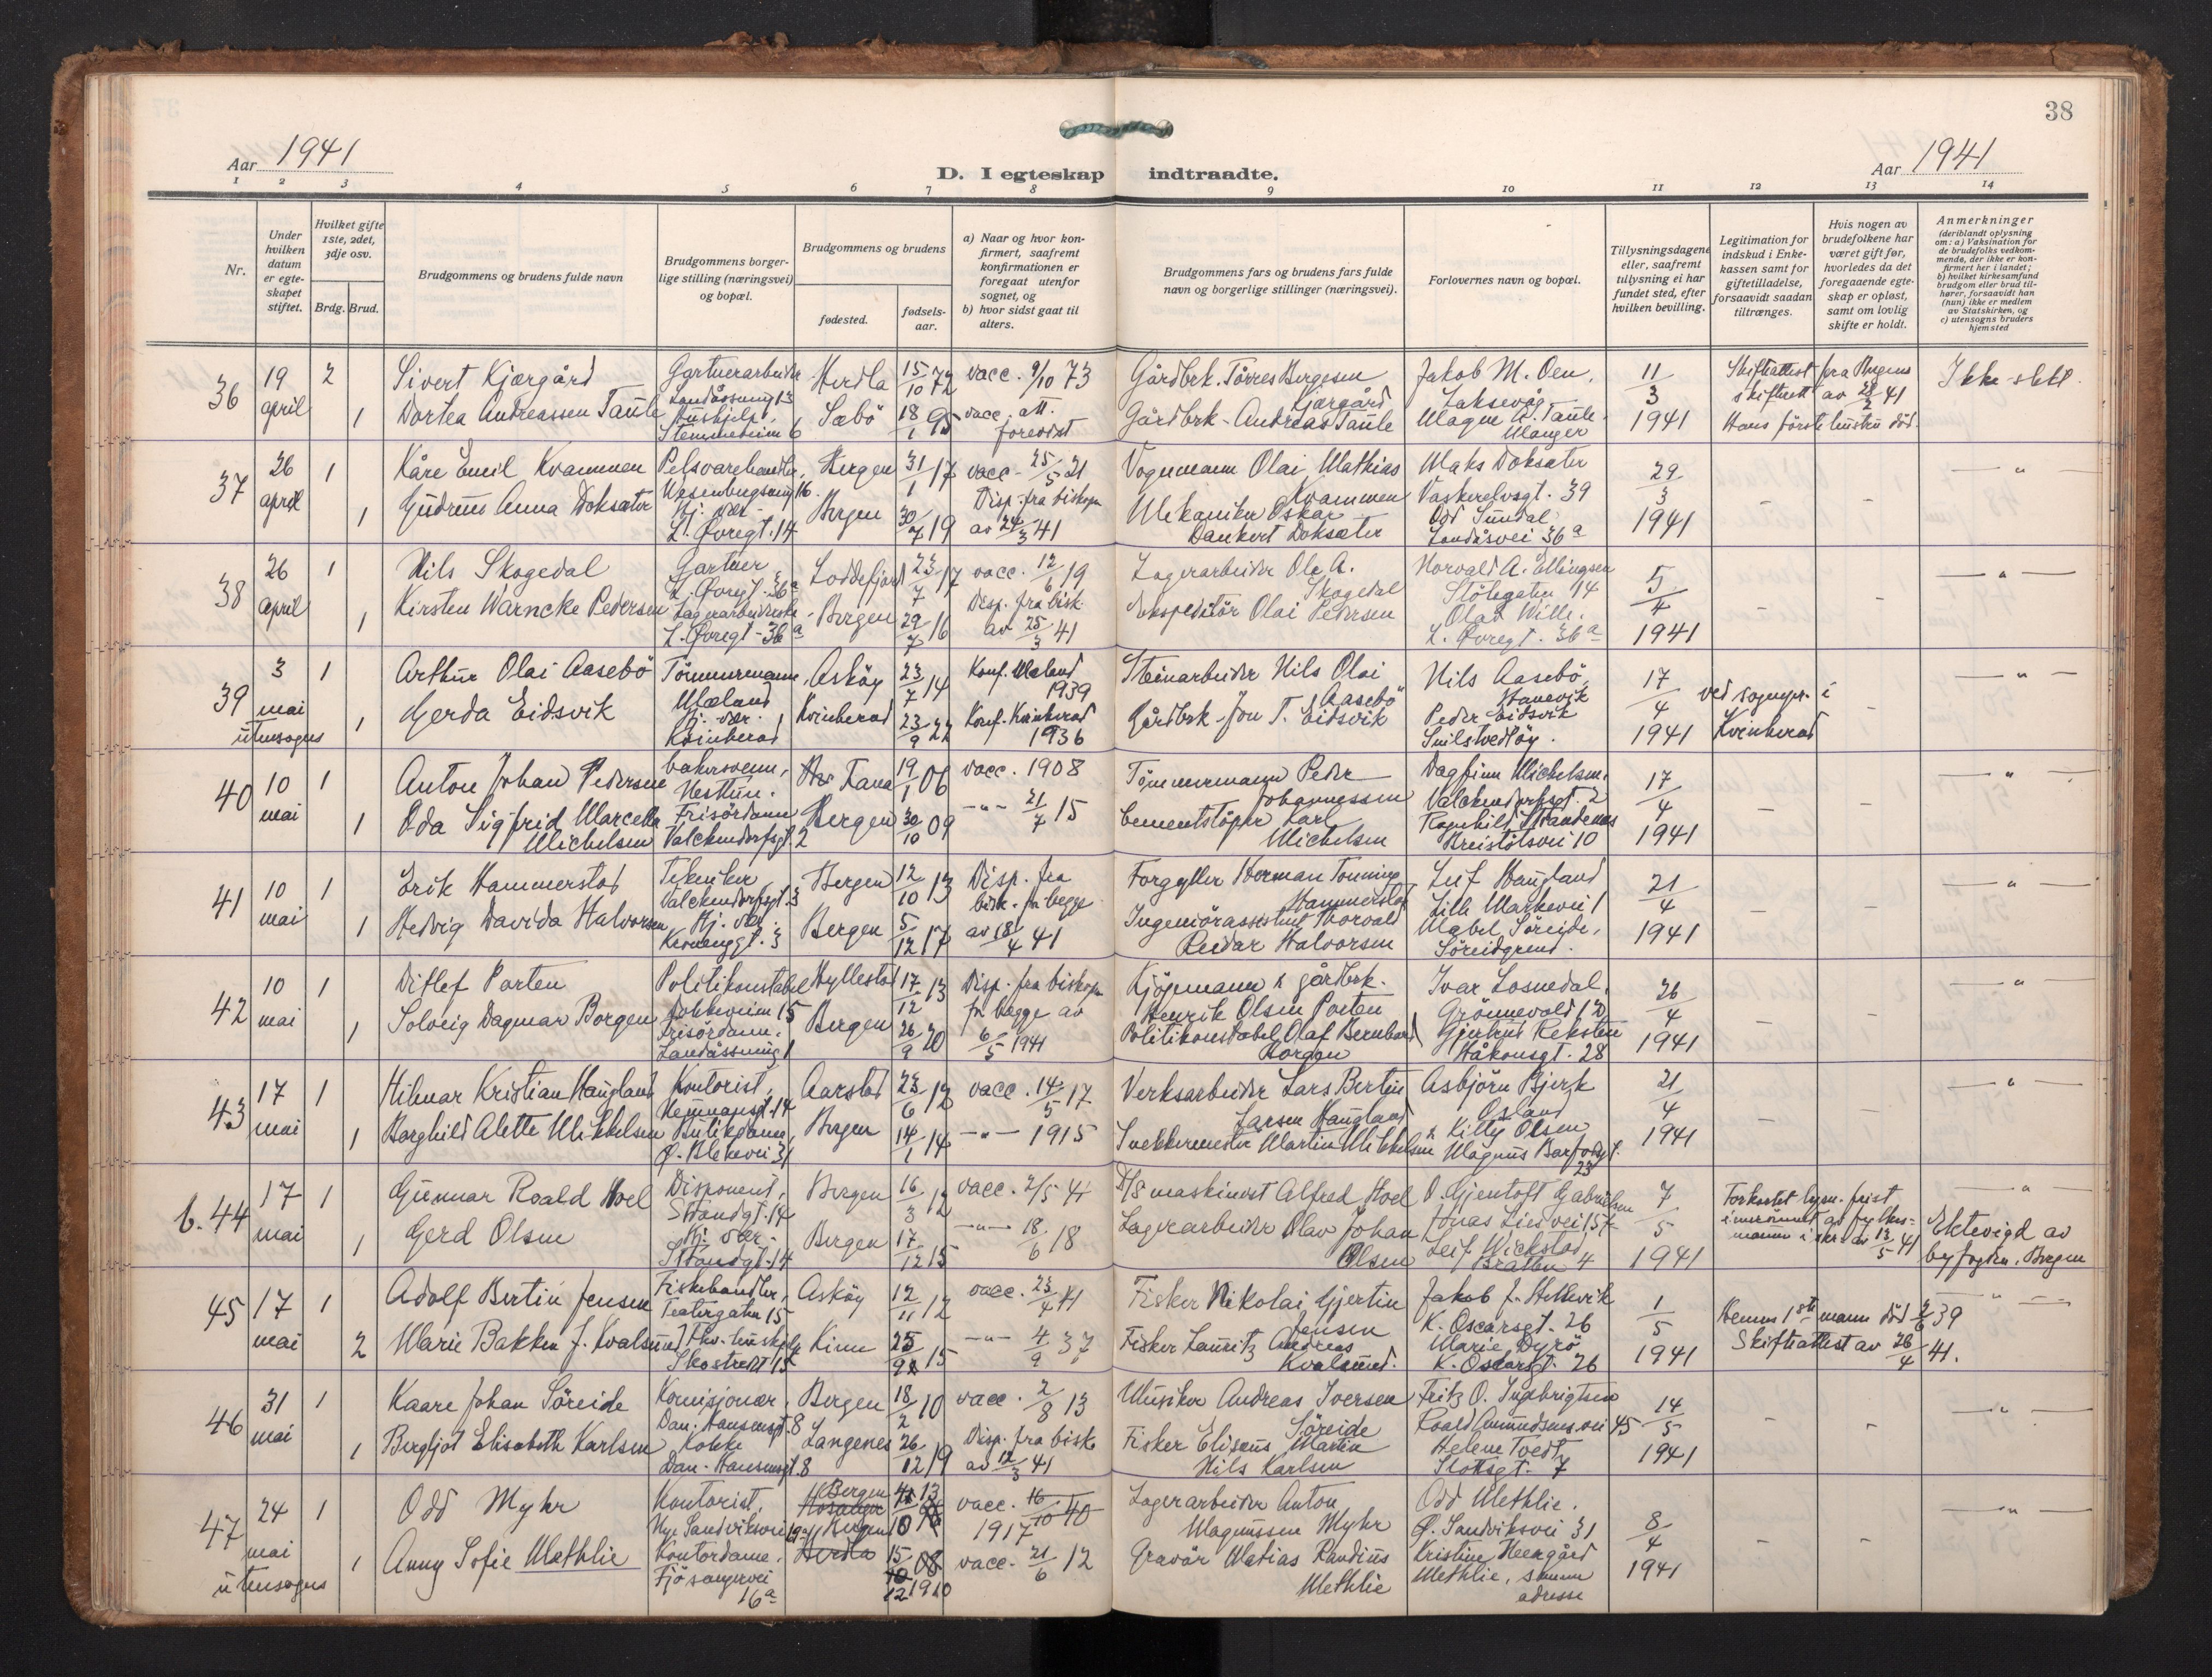 38
Aar 1941
Aar 1941
D. I egteskap indtraadte.
1 2 3 4 5 6 7 8 9 10 11 12 13 14
Nr.
Under hvilken datum er egteskapet stiftet.
Hvilket gifte 1ste, 2det, 3dje osv.
Brdg. Brud.
Brudgommens og brudens fulde navn
Brudgommens borgerlige stilling (næringsvei) og bopæl.
Brudgommens og brudens
fødested.
fødselsaar.
a) Naar og hvor konfirmert, saafremt konfirmationen er foregaat utenfor sognet, og
b) hvor sidst gaat til alters.
Brudgommens fars og brudens fars fulde navn og borgerlige stillinger (næringsvei).
Forlovernes navn og bopæl.
Tillysningsdagene eller, saafremt tillysning ei har fundet sted, efter hvilken bevilling.
Legitimation for indskud i Enkekassen samt for giftetilladelse, forsaavidt saadan tiltrænges.
Hvis nogen av brudefolkene har været gift før, hvorledes da det foregaaende egteskap er opløst, samt om lovlig skifte er holdt.
Anmerkninger
(deriblandt oplysning om: a) Vaksination for de brudefolks vedkommende, der ikke er konfirmert her i landet; b) hvilket kirkesamfund brudgom eller brud tilhører, forsaavidt han (hun) ikke er medlem av Statskirken, og c) utensogns bruders hjemsted
36 19 april 2 Sivert Kjærgård Gartnerarbeider Landåssving 13 Herdla 15/10 72 vacc. 9/10 73 Gårdbrk. Törres Bergesen Kjærgård Jakob M. Oen, Laksevåg 11/3 1941 Skifteattest fra Bergens skifterett av 28/2 41 Ikke slekt
1 Dortea Andreassen Taule Hushjelp, Stemmeveien 6 Sæbö 18/1 95 vacc. att. forevist Gårdbrk. Andreas Taule Magne A. Taule Manger Hans förste hustru död.
37 26 april 1 Kåre Emil Kvammen Pelsvarehandler, Wesenbergsmug 16 Bergen 31/1 17 vacc. 25/5 21 Vognmann Olai Mathias Kvammen Maks Doksæter Vaskerelvsgt. 39 29/3 1941 - - - " -
1 Gudrun Anna Doksæter Hj. vær. L. Øvregt. 14 Bergen 30/7 19 Disp. fra biskopen av 24/3 41 Mekaniker Oskar Dankert Doksæter Odd Sundal Landåsvei 36a
38 26 april 1 Nils Skogedal Gartner L. Øvregt. 36a Loddefjord 23/7 17 vacc. 12/6 19 Lagerarbeider Ole A. Skogedal Norvald A. Ellingsen Stölegaten 14 5/4 1941 - - - " -
1 Kirsten Warncke Pedersen Lagerarbeiderske L. Øvregt. 36a Bergen 29/7 16 Disp. fra bisk. av 25/3 41 Ekspeditör Olai Pedersen Olav Wille. L. Øvregt. 36a
39 3 mai utensogns 1 Arthur Olai Aasebö Tömmermann, Mæland Asköy 23/7 14 Konf. Mæland 1939 Steinarbeider Nils Olai Aasebö Nils Aasebö, Hanevik 17/4 1941 ved sognepr. i Kvinherad - - " -
1 Gerda Eidsvik Hj. vær. Kvinherad Kvinherad 23/9 22 Konf. Kvinherad 1936 Gårdbrk. Jon T. Eidsvik Peder Eidsvik
40 10 mai 1 Anton Johan Pedersen bakersvenn, Nesttun. Fana 19/1 06 vacc. 1908 Tömmermann Peder Johannessen Dagfinn Michelsen, Valckendorfsgt. 2 17/4 1941 - - - " -
1 Oda Sigfrid Marcella Michelsen Frisördame Valckendorfsgt. 2 Bergen 30/10 09 - " - 21/7 15 Cementstöper Karl Michelsen Ragnhild Strandenes Breistölsvei 10
41 10 mai 1 Erik Hammerstad Tekniker Valckendorfsgt. 3 Bergen 12/10 13 Disp. fra bisk. for begge av 18/4 41 Forgyller Herman Tonning Hammerstad Leif Haugland Lille Markevei 1 21/4 1941 - - - " -
1 Hedvig Davida Halvorsen Hj. vær. Bergen 5/12 17 Ingeniörassistent Thorvald Reidar Halvorsen Mabel Söreide, Söreidgrend.
42 10 mai 1 Ditlef Porten Politikonstabel Dokkeveien 15 Hyllestad 17/12 13 Disp. fra biskopen for begge av 6/5 1941 Kjöpmann & gårdbrk. Henrik Olsen Porten Ivar Losnedal. 26/4 1941 - - - " -
1 Solveig Dagmar Borgen Frisördame. Landåssving 1 Bergen 26/9 20 Politikonstabel Olaf Bernhard Borgen Gjertrud Reksten Håkonsgt. 28
43 17 mai 1 Hilmar Kristian Haugland Kontorist, Aarstad 23/6 13 vacc. 14/5 17 Verksarbeider Lars Bertin Larsen Haugland Asbjörn Bjerk Osland 21/4 1941 - - - " -
1 Borghild Alette Mikkelsen Butikdame, Ø. Blekevei 31 Bergen 14/1 14 - " - 1915 Snekkermester Martin Mikkelsen & Kitty Olsen Magnus Barfotsgt. 23
b. 44 17 mai 1 Gunnar Roald Hoel Disponent, Strandgt. 14 Bergen 16/3 12 vacc. 2/5 41 D/S maskinist Alfred Hoel O. Gjentoft Gabrielsen Jonas Liesvei 15 7/5 1941 Forkortet lysn. frist innrömmet av fylkesmann i skr. av 13/5 41 - " -
1 Gerd Olsen Hj. vær. Strandgt. 14 Bergen 17/12 15 - " - 18/6 18 Lagerarbeider Olav Johan Olsen Leif Wickstad, Bratten 4 Ektevigd av byfogden i Bergen
45 17 mai 1 Adolf Bertin Jensen Fiskehandler, Teatergaten 15 Asköy 12/11 12 vacc. 23/4 41 Fisker Nikolai Gjertin Jensen Jakob J. Hellevik K. Oscarsgt. 26 1/5 1941 Hennes 1ste mann död 2/3 39 - " -
2 Marie Bakken f. Kvalsund Skostredt 15 Kinn 25/9 15 - " - 4/9 37 Fisker Lauritz Andreas Kvalsund. Marie Dyrö K. Oscarsgt. 26 Skifteattest av 26/4 41.
46 31 mai 1 Kaare Johan Söreide Komisjonær, Dan. Hansensgt. 8 Bergen 18/2 10 vacc. 2/8 13 Musiker Andreas Iversen Söreide Fritz O. Ingebrigtsen Roald Amundsens vei 45 14/5 1941 - - - " -
1 Bergljot Elisabeth Karlsen Kokke Dan. Hansensgt. 8 Langenes 26/12 19 Disp. fra bisk. av 12/3 41 Fisker Eliseus Martin Nils Karlsen Helene Tvedt, Slottsgt. 7
47 24 mai utensogns 1 Odd Myhr Kontorist, Nye Sandviksvei Bergen 13 vacc. 16/10 40 1917 Lagerarbeider Anton Magnussen Myhr Odd Methlie. Ø. Sandviksvei 31 8/4 1941 - - - " -
1 Anny Sofie Methlie Kontordame. Fjösangervei 16a Bergen Herdla 15/10 08 12 1910 vacc. 21/6 12 Gravör Matias Randius Methlie Kristine Heergård Methlie, samme adresse